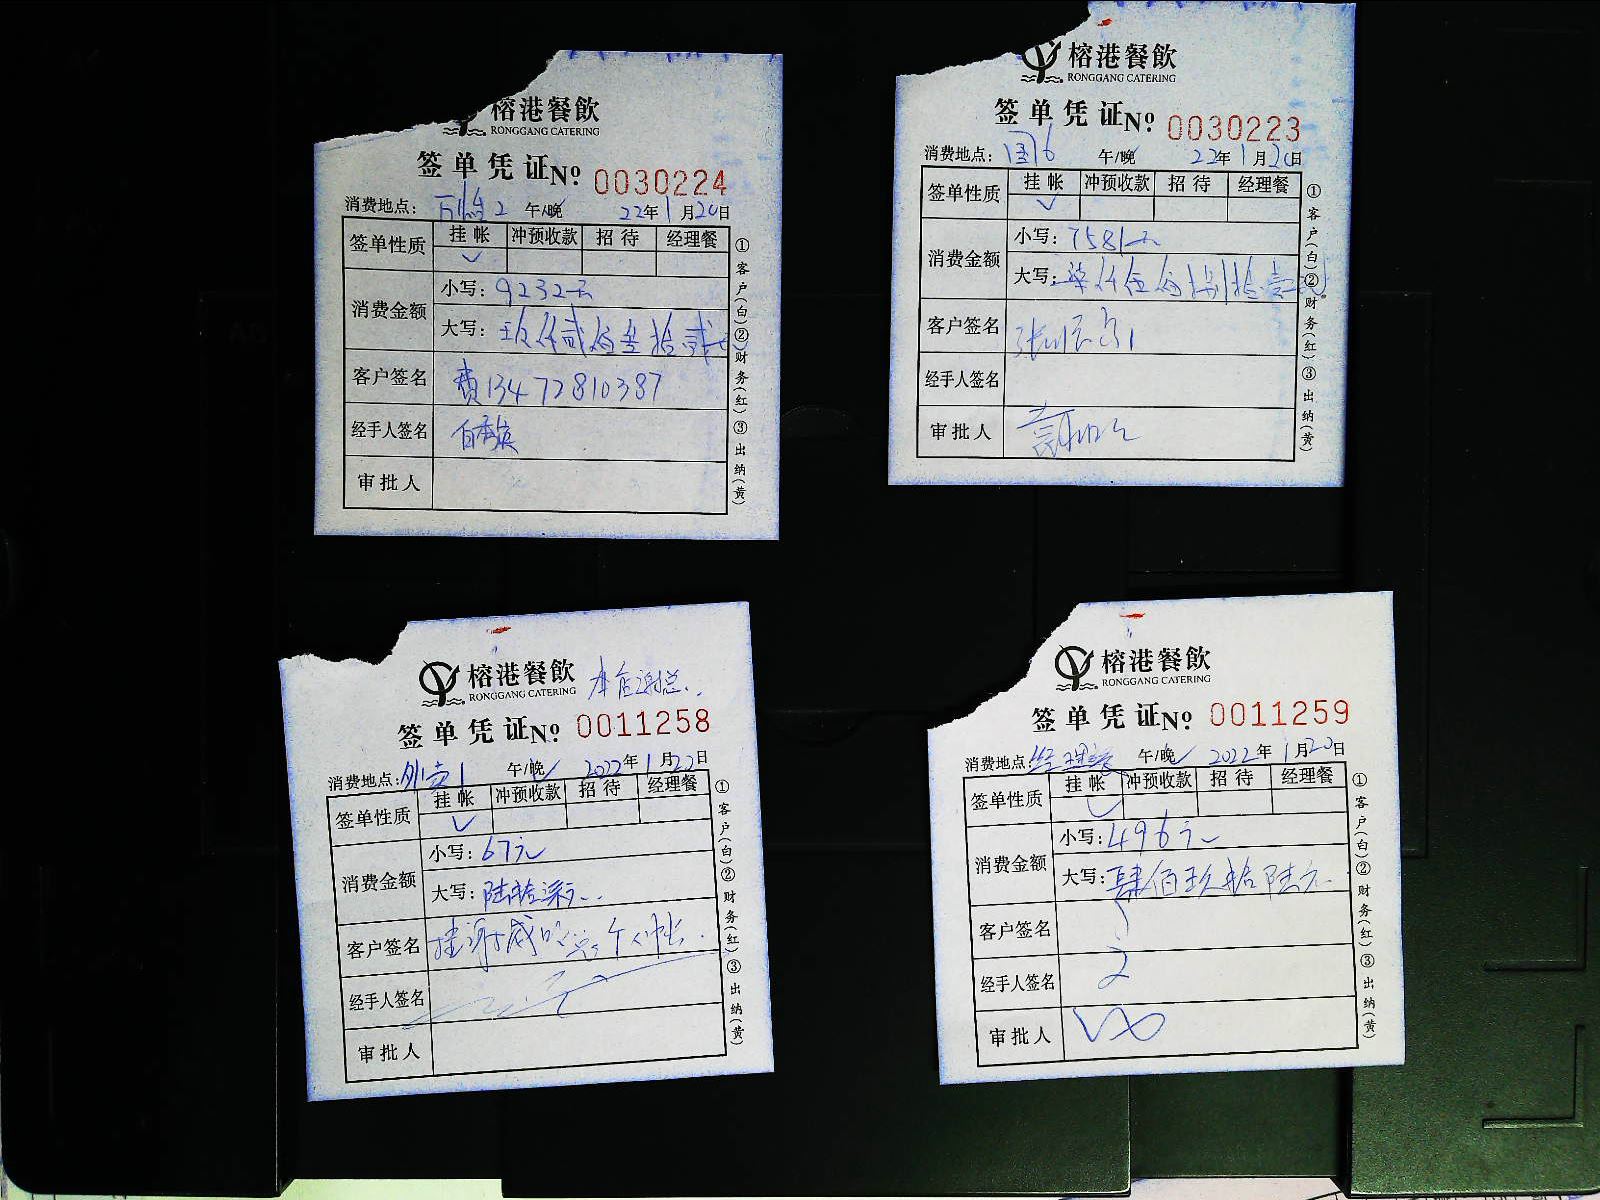 榕港餐飲
RONGGANG CATERING
签单凭证№ 0030224
消费地点: 2 午/晚 22年1月20日
签单性质 挂帐 冲预收款 招待 经理餐
✓
消费金额
小写: 9232元
大写: 玖仟贰佰叁拾贰元
客户签名 费13472810387
经手人签名
审批人
①客户(白)②财务(红)③出纳(黄)
榕港餐飲
RONGGANG CATERING
签单凭证№ 0030223
消费地点: 国6 午/晚 22年1月20日
签单性质 挂帐 冲预收款 招待 经理餐
✓
消费金额
小写: 7581元
大写: 柒仟伍佰捌拾壹元
客户签名
经手人签名
审批人
①客户(白)②财务(红)③出纳(黄)
榕港餐飲
RONGGANG CATERING
本自谢总..
签单凭证№ 0011258
消费地点: 外卖1 午/晚✓ 2022年1月22日
签单性质 挂帐 冲预收款 招待 经理餐
✓
消费金额
小写: 67元
大写: 陆拾柒元..
客户签名 挂谢威的 个人帐.
经手人签名
审批人
①客户(白)②财务(红)③出纳(黄)
榕港餐飲
RONGGANG CATERING
签单凭证№ 0011259
消费地点: 经理餐 午/晚✓ 2022年1月20日
签单性质 挂帐 冲预收款 招待 经理餐
✓
消费金额
小写: 496元
大写: 肆佰玖拾陆元.
客户签名
经手人签名
审批人
①客户(白)②财务(红)③出纳(黄)